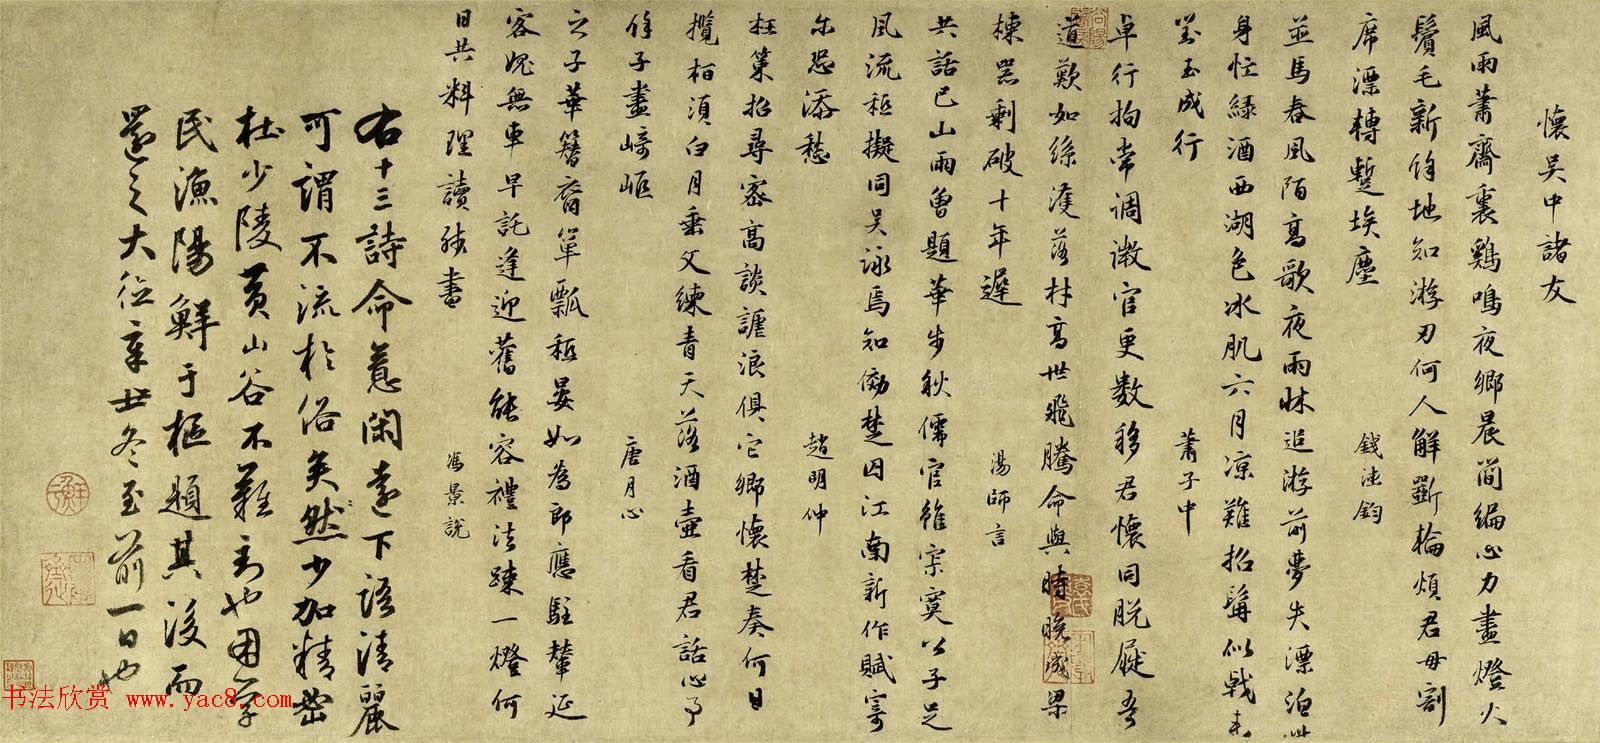 懷吳中諸友
風雨蕭齋裏鷄鳴夜鄉晨簡編心力盡燈火
鬢毛新餘地知游刃何人解斲輪煩君毋割
席漂轉蹔埃塵
錢德鈞
並馬春風陌高歌夜雨牀追游前夢失漂泊此
身忙綠酒西湖色冰肌六月凉難招髯似戟未
對玉成行
蕭子中
卓行拘常調微官更數移君懷同脫屣吾
道歎如絲濩落材高世飛騰命與時晚歲梁
棟器剩破十年遲
湯師言
共話巴山雨曾題華步秋儒官雖寂寞公子足
風流秪擬同吳詠焉知効楚囚江南新作賦寄
尔恐添愁
趙明仲
枉策招尋密高談謔浪俱它鄉懷楚奏何日
攬柏須白月垂父練青天落酒壺看君話心事
餘子盡崎嶇
唐月心
之子華簪裔簞瓢秪晏如為郎應駐輦延
客媿無車早託逢迎舊能容禮法疎一燈何
日共料理讀殘書
馮景說
右十三詩命意閑遠下語清麗
可謂不流於俗矣然少加精密
杜少陵黃山谷不難到也困學
民漁陽鮮于樞題其後而
還之大德辛丑冬至前一日也
书法欣赏 www.yac8.com